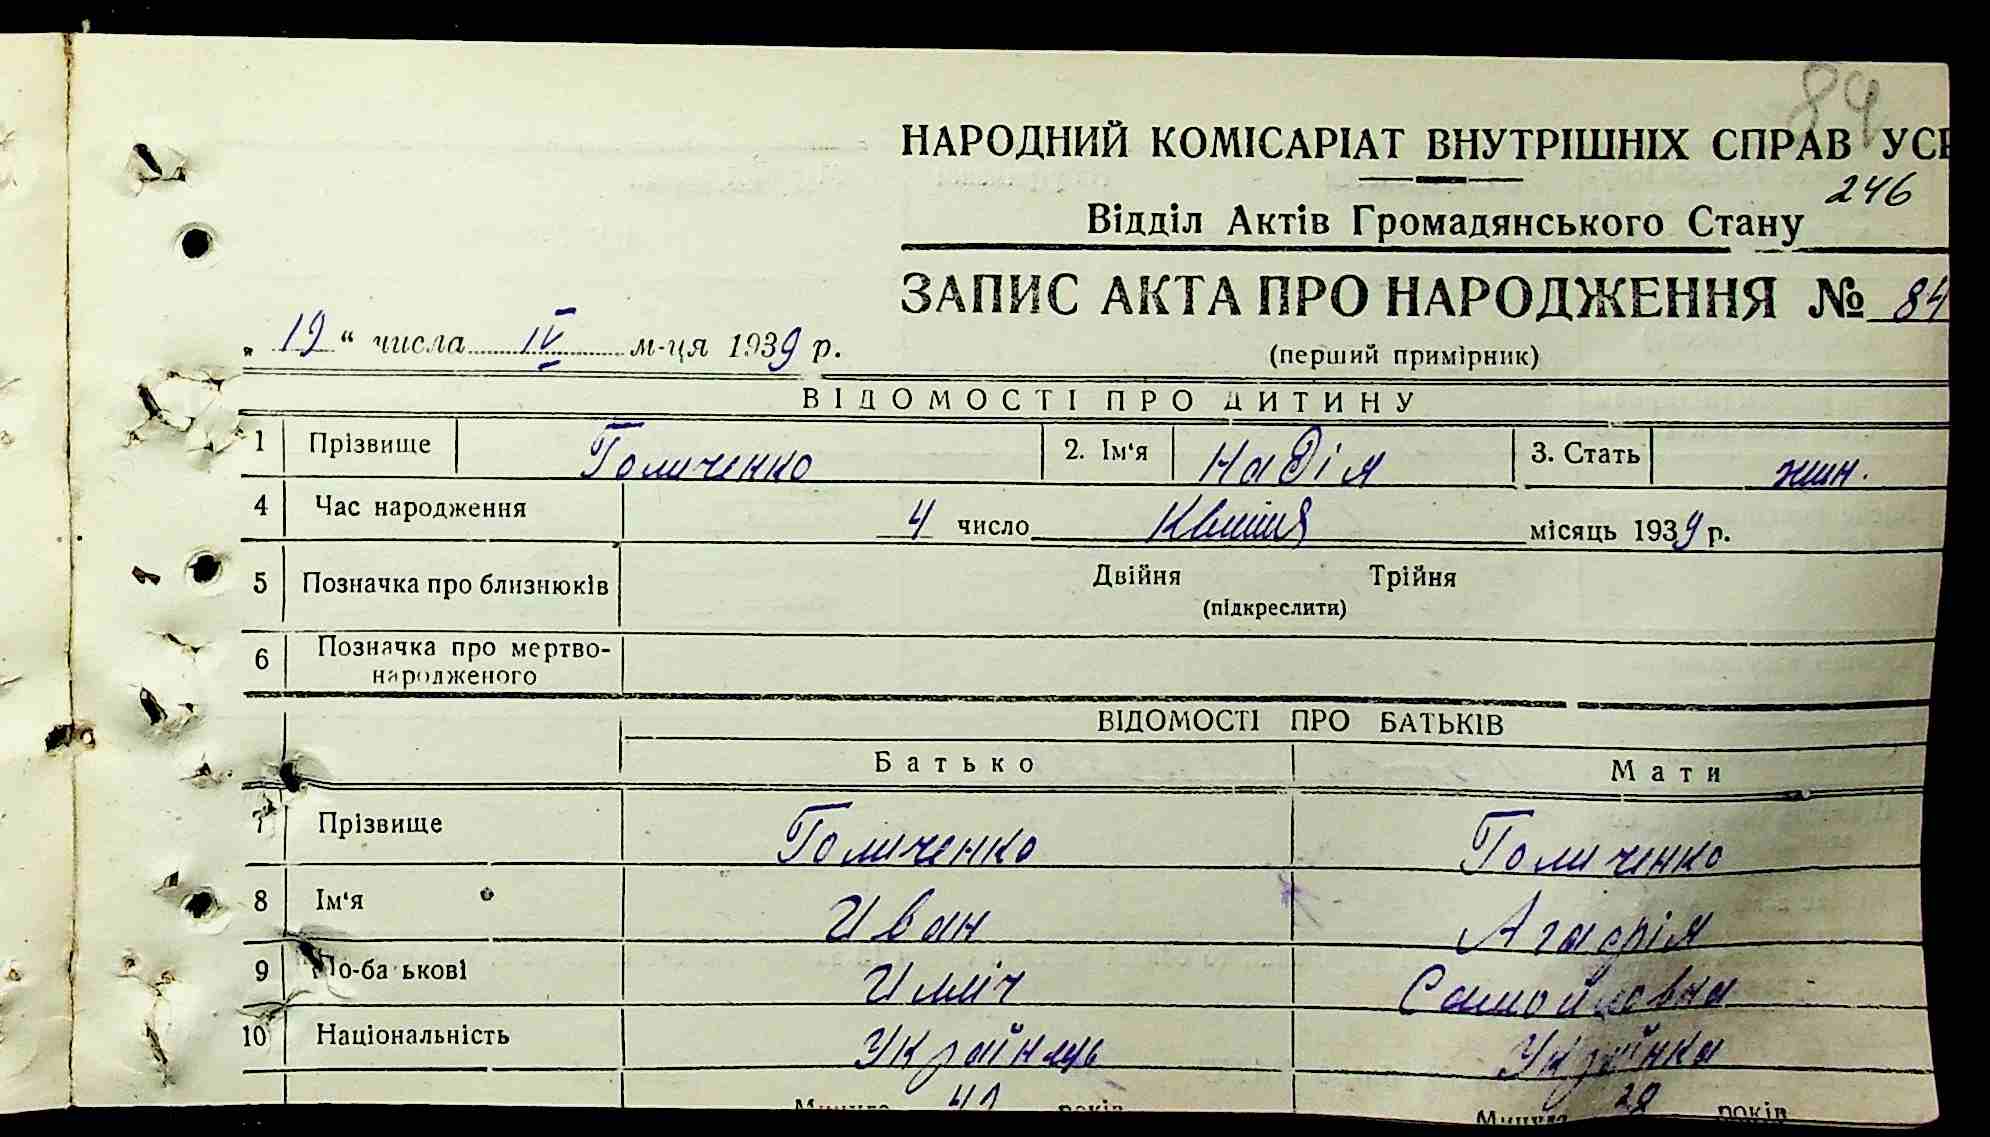 84
НАРОДНИЙ КОМІСАРІАТ ВНУТРІШНІХ СПРАВ УСР
246
Відділ Актів Громадянського Стану
ЗАПИС АКТА ПРО НАРОДЖЕННЯ № 84
„ 19 “ числа IV м-ця 1939 р.
(перший примірник)
ВІДОМОСТІ ПРО ДИТИНУ
1 Прізвище Голиченко 2. Ім'я Надія 3. Стать жін.
4 Час народження 4 число Квітня місяць 1939 р.
5 Позначка про близнюків Двійня Трійня
(підкреслити)
6 Позначка про мертво-
народженого
ВІДОМОСТІ ПРО БАТЬКІВ
Батько Мати
7 Прізвище Голиченко Голиченко
8 Ім'я Иван Агафія
9 По-батькові Ілліч Самойловна
10 Національність Українець Українка
Минуло років Минуло 28 років